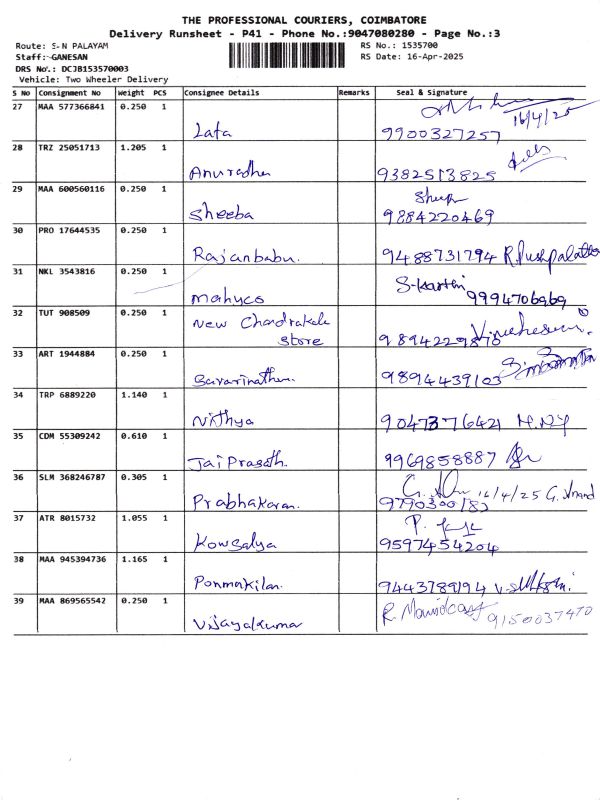 THE PROFESSIONAL COURIERS, COIMBATORE
Delivery Runsheet - P41 - Phone No.:9047080280 - Page No.:3
Route: S-N PALAYAM
RS No.: 1535700
Staff: GANESAN
RS Date: 16-Apr-2025
DRS No.: DCJB153570003
Vehicle: Two Wheeler Delivery
S No Consignment No Weight PCS Consignee Details Remarks Seal & Signature
27 MAA 577366841 0.250 1
16/4/25
Lata 9900327257
28 TRZ 25051713 1.205 1
Anuradha 9382513825
29 MAA 600560116 0.250 1
Sheeba 9884220469
30 PRO 17644535 0.250 1
Rajanbabu. 9488731794 R. Pushpalatha
31 NKL 3543816 0.250 1
Mahyco S-Karthi 9994706969
32 TUT 908509 0.250 1
New Chandrakala
Store
33 ART 1944884 0.250 1
9894439103
34 TRP 6889220 1.140 1
Nithya 9047376421
35 CDM 55309242 0.610 1
Jai Prasath. 9969858887
36 SLM 368246787 0.305 1
16/4/25 G. Anand
Prabhakaran. 9790300182
37 ATR 8015732 1.055 1
Kowsalya 9597454204
38 MAA 945394736 1.165 1
Ponmakilan. 9443789194
39 MAA 869565542 0.250 1
Vijayakumar 9150037470